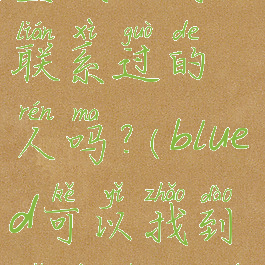 lián xì guò de
联系过的
rén ma
人吗?(blue
kě yǐ zhǎo dào
d可以找到